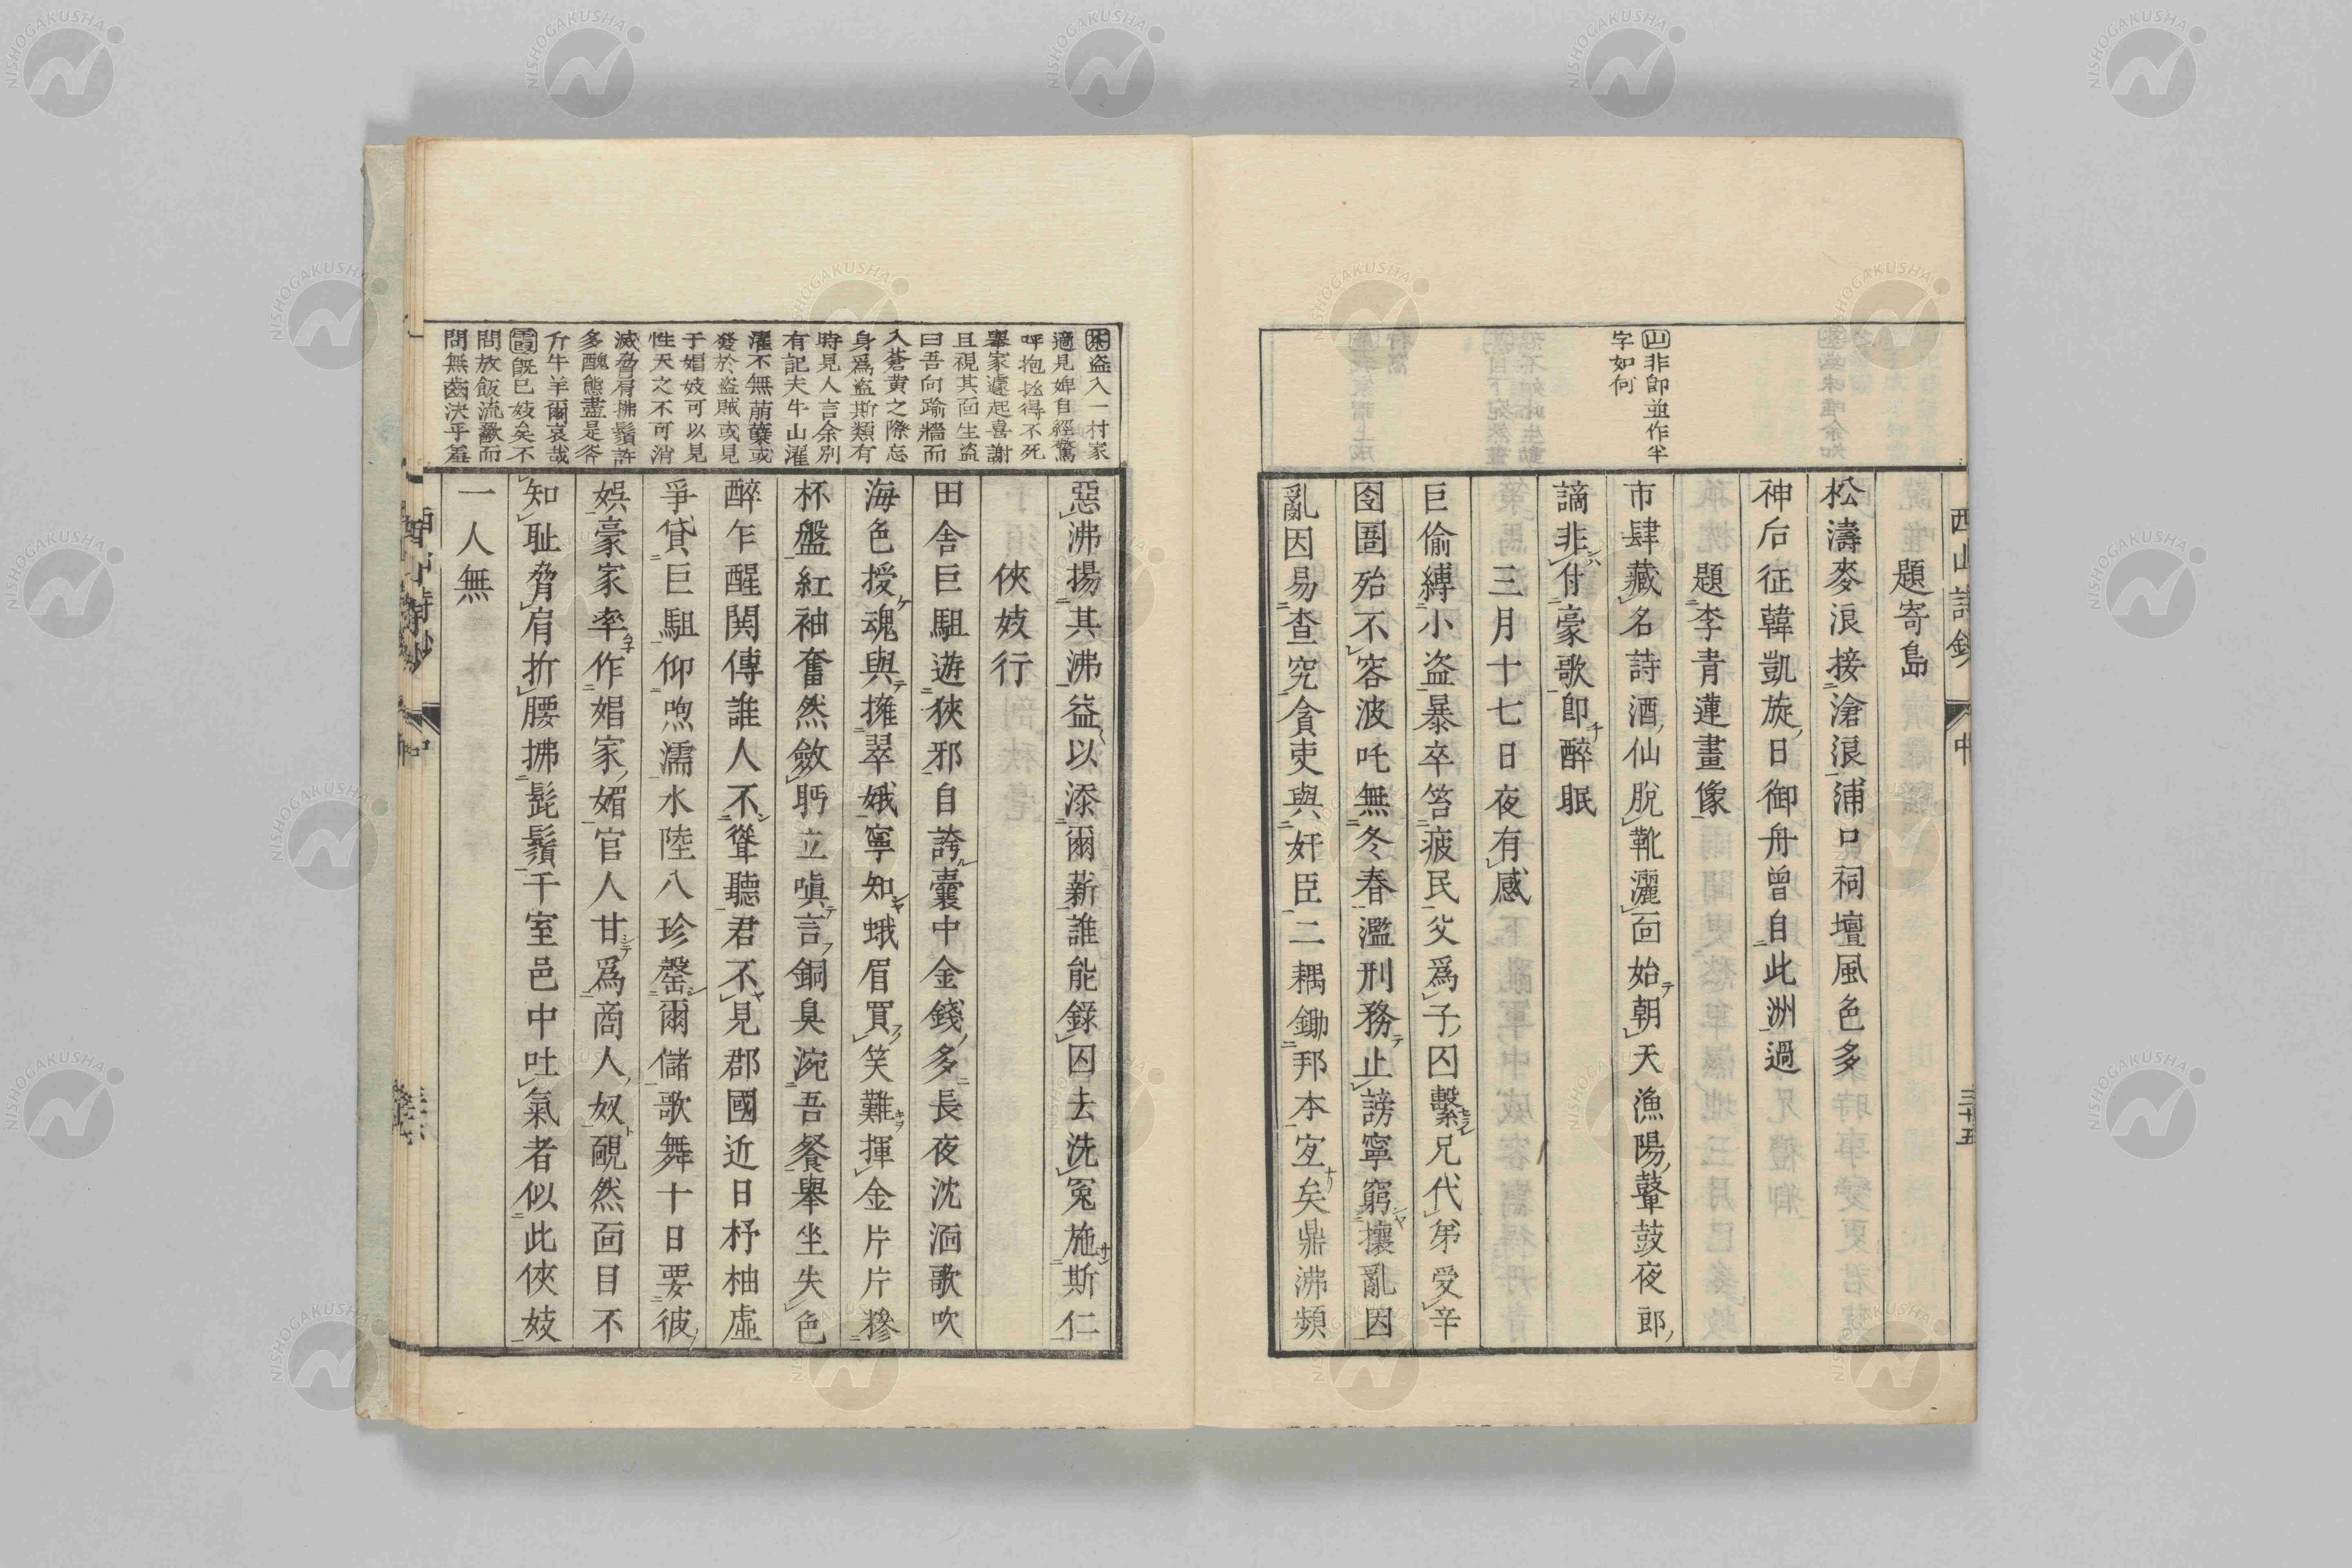 西山詩鈔
中
三十五
山非郎並作半
字如何
題寄島
松濤麥浪接滄浪浦口祠壇風色多
神后征韓凱旋日御舟曾自此洲過
題李青蓮畫像
市肆藏名詩酒仙脫靴灑面始朝天漁陽鼙鼓夜郎
謫非付豪歌卽醉眠
三月十七日夜有感
巨偷縛小盜暴卒笞疲民父爲子囚繫兄代弟受辛
囹圄殆不容波吒無冬春濫刑務止謗寧窮攘亂因
亂因易查究貪吏與奸臣二耦鋤邦本宐矣鼎沸頻
盜入一村家
適見婢自經驚
呼抱拯得不死
舉家遽起喜謝
且視其面生盜
曰吾向踰牆而
入蒼黃之際忘
身爲盜斯類有
時見人言余別
有記夫牛山濯
濯不無萠蘖或
發於盜賊或見
于娼妓可以見
性天之不可消
滅脅肩拂鬚許
多醜態盡是斧
斤牛羊爾哀哉
霞旣已妓矣不
問放飯流歠而
問無齒決乎羞
惡沸揚其沸益以添爾薪誰能錄囚去洗冤施斯仁
俠妓行
田舍巨駔遊狹邪自誇囊中金錢多長夜沈湎歌吹
海色授魂與擁翠娥寧知蛾眉買笑難揮金片片糝
杯盤紅袖奮然斂眄立嗔言銅臭涴吾餐舉坐失色
醉乍醒鬨傳誰人不聳聽君不見郡國近日杼柚虛
爭貸巨駔仰喣濡水陸八珍罄爾儲歌舞十日要彼
娛豪家率作娼家媚官人甘爲商人奴靦然面目不
知恥脅肩折腰拂髭鬚千室邑中吐氣者似此俠妓
一人無
西山詩鈔
中